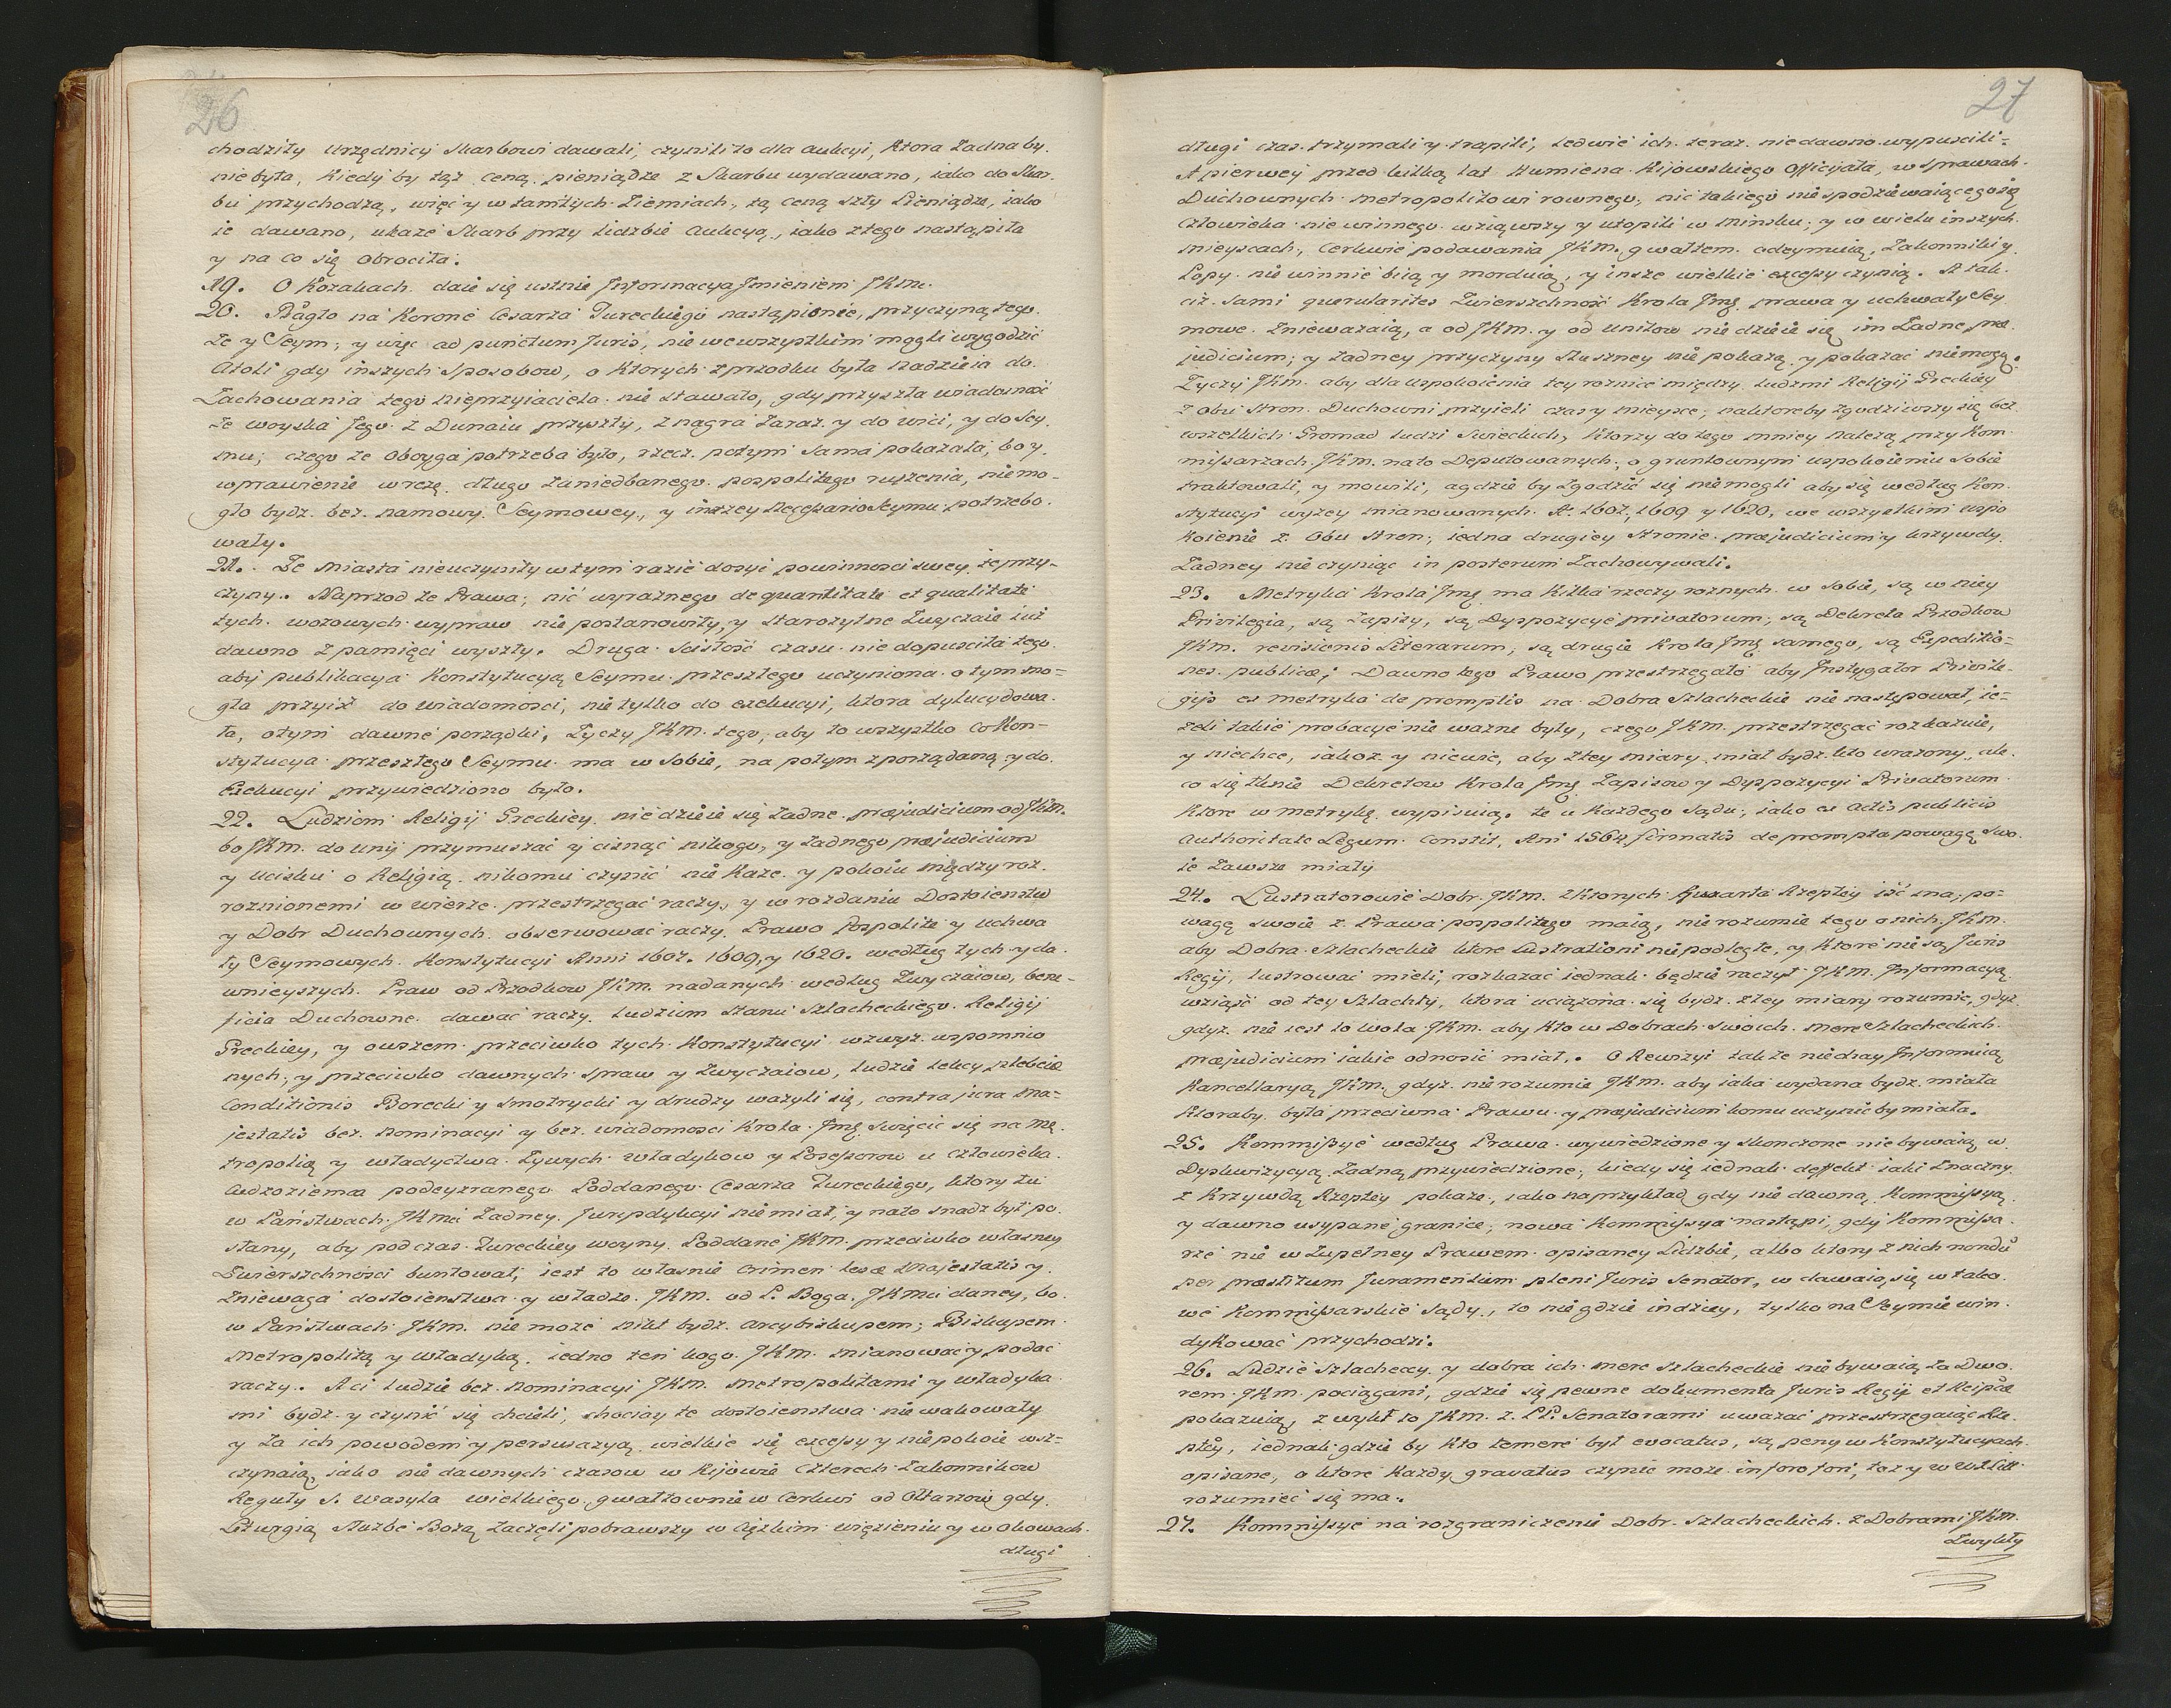 26
chodziły Urzędnicy Skarbowi dawali, czynili to dla aukcyi, ktora Żadna by.
nie była, Kiedy by tąż ceną pieniądze z Skarbu wydawano, iako do Skar.
bu przychodzą, więc y w tamtych Ziemiach, tą ceną szły Pieniądze, iako
ie dawano, ukaże Skarb przy Lidzbie Aukcyą, iako z tego nastąpiła
y na co się obrociła.
19. O Kozakach daie się ustnie Informacya Imieniem JKm.
20. Nagło na Koronę Cesarza Tureckiego nastąpienie, przyczyną tego.
że y Seym, y więc ad punctum Juris, nie we wszystkim mogli wygodzić
Atoli gdy inszych Sposobow, o Ktorych z przodku była Nadzieia do.
Zachowania tego Nieprzyiaciela nie stawało, gdy przyszła wiadomość
że woyska Jego z Dunaiu przyszły, z nagra zaraz y do wici, y do Sey.
mu; czego że oboyga potrzeba było, rzecz potym Sama pokazała, bo y.
wprawienie w rzę długo zaniedbanego pospolitego ruszenia, nie mo-
gło bydz bez namowy Seymowey, y inszey Necessario Seymu potrzebo.
wały.
21. Że Miasta nieuczyniły w tym razie dosyć powinnosci swey, te przy-
czyny. Naprzod że Prawa, nic wyraznego de quantitate et qualitate
tych wozowych wypraw nie postanowiły, y Starożytne Zwyczaie iuż
dawno z pamięci wyszły. Druga Scisłość czasu nie dopusciła tego
aby publikacya Konstytucyą Seymu przeszłego uczyniona o tym mo=
gła przyiść do wiadomosci, nie tylko do exekucyi, ktora dylucydowa.
ła, o tym dawne porządki, Życzy JKM. tego, aby to wszystko co Kon-
stytucya przeszłego Seymu ma w Sobie, na potym z porządaną y do.
Exekucyi przywiedziono było.
22. Ludziom Religij Greckiey nie dzieie się Żadne præjudicium od JKm.
bo JKm. do Unij przymuszać y cisnąć nikogo, y Żadnego præjudicium
y Ucisku o Religią nikomu czynić nie Każe y pokoiu między roz.
roznionemi w wierze przestrzegać raczy, y w rozdaniu Dostoienstw
y Dobr Duchownych obserwować raczy Prawo Pospolite y Uchwa
ły Seymowych Konstytucyi Anni 1607. 1609, y 1620. według tych y da.
wnieyszych Praw od Przodkow JKm. nadanych według Zwyczaiow, bene-
ficia Duchowne dawać raczy Ludziom Stanu Szlacheckiego Religij
Greckiey, y owszem przeciwko tych Konstytucyi wzwyż wspomnio
nych, y przeciwko dawnych Spraw y Zwyczaiow, Ludzie lekcy plebeiæ
Conditionis Borecki y Smotrycki y drudzy ważyli się, contra jura Ma=
jestatis bez Nominacyi y bez wiadomosci Krola Jmę. Swięcić się na Me.
tropolią y władyctwa Żywych Władykow y Posessorow u człowieka
Cudzoziemca podeyzranego Poddanego Cesarza Tureckiego, ktory tu
w Państwach JKMci Żadney Jurysdykcyi nie miał, y na to snadz był po.
słany, aby pod czas Tureckiey woyny Poddane JKm. przeciwko własney
Zwierszchnosci buntował, iest to własnie Crimen lesæ Majestatis y
Zniewaga dostoienstwa y władze JKm. od P. Boga, JKMci daney, bo.
w Państwach JKm. nie może nikt bydz Arcybiskupem; Biskupem
Metropolitą y władyką, iedno ten kogo JKm. mianować y podać
raczy. A ci Ludzie bez Nominacyi JKm. Metropolitami y władyka
mi bydz y czynić się chcieli, chociay te dostoienstwa nie wakowały
y za ich powodem y perswazyą wielkie się excessy y niepokoie wsz=
czynaią, iako nie dawnych czasow w Kijowie czterech Zakonnikow
Reguły S. Wasyla wielkiego gwałtownie w Cerkwi od Ołtarzow gdy
Liturgią Służbę Bożą zaczęli pobrawszy w ciężkim więzieniu y w okowach.
długi
27
długi czas trzymali y trapili, ledwie ich teraz nie dawno wypuscili=
A pierwey przed kilką lat Humiena Kijowskiego Officyała, w Sprawach
Duchownych Metropolitowi rownego, nic takiego nie spodziewaiącego się
człowieka niewinnego wziąwszy y utopili w Minsku; y w wielu inszych
Mieyscach, Cerkwie podawania JKm. gwałtem odeymuią, Zakonniki y
Popy niewinnie biią y morduią, y insze wielkie excessy czynią. A tak
ciż sami querulantes Zwierszchność Krola Jmę. prawa y uchwały Sey.
mowe zniewazaią, a od JKm. y od unitow nie dzieie się im Żadne præ.
judicium; y Żadney przyczyny Słuszney nie pokażą y pokazać niemogą.
Życzy JKm. aby dla uspokoienia tey roznice między Ludzmi Religij Greckiey
z obu Stron Duchowni przyieli czas y mieysce, na ktoreby zgodziwszy się bez
wszelkich Gromad Ludzi Swieckich, Ktorzy do tego mniey należą przy Kom
missarzach JKm. na to Deputowanych, o gruntownym uspokoieniu Sobie
traktowali, y mowili, a gdzie by zgodzić się nie mogli aby się według Kon.
stytucyi wyżey mianowanych A. 1607, 1609 y 1620, we wszystkim uspo
koienie z Obu Stron, iedna drugiey Stronie præjudicium y krzywdy
Żadney nie czyniąc in posterum Zachowywali.
23. Metryka Krola Jmę. ma Kilka rzeczy roznych w Sobie, są w niey
Privilegia, są Zapisy, są Dyspozycye privatorum, są Dekreta Przodkow
JKm. revisionis Literarum, są drugie Krola Jmę. samego, są Expeditio=
nes publicæ; Dawno tego Prawo przestrzegało aby Instygator Privile.
gijs ex metryka de promptis na Dobra Szlacheckie nie następował, ie=
żeli takie probacye nie ważne były, czego JKm. przestrzegać rozkazuie,
y niechce, iakoż y niewie, aby z tey miary miał bydz kto urażony, ale
co się tknie Dekretow Krola Jmę. Zapisow y Dyspozycyi Privatorum
Ktore w Metrykę wypisuią, te u Każdego Sądu, iako ex actis publicis
Authoritate Legum Constit. Ani 1564 firmatis de prompta powagę Swo.
ie zawsze miały
24. Lustratorowie Dobr JKm. z ktorych Kwarta Rzeptey iść ma, po=
wagę swoię z Prawa pospolitego maią, nie rozumie tego o nich JKm.
aby Dobra Szlacheckie ktore Lustrationi nie podległe, y Ktore nie są Juris
Regij, lustrować mieli, rozkazać iednak będzie raczył JKm. Informacyą
wziąść od tey Szlachty, ktora uciążona się bydz z tey miary rozumie, gdyż
gdyż nie iest to wola JKm. aby Kto w Dobrach Swoich mere Szlacheckich
præjudicium iakie odnosić miał. O Rewizyi także niechay Informuią
Kancellaryą JKm. gdyż nie rozumie JKm. aby iaka wydana bydz miała
Ktoraby była przeciwna Prawu y præjudicium komu uczynić by miała.
25. Kommissye według Prawa wywiedzione y Skonczone nie bywaią w
Dyskwizycyą Żadną przywiedzione, kiedy się iednak deffekt iaki znaczny
z Krzywdą Rzeptey pokaże, iako na przykład gdy nie dawną Kommissyą
y dawno usypane granice, nowa Kommissya nastąpi, gdy Kommissa.
rze nie w Zupełney Prawem opisaney Lidzbie, albo ktory z nich nondu
per præstitum Juramentum pleni Juris Senator, w dawaią się w tako.
we Kommissarskie Sądy, to nie gdzie indziey, tylko na Seymie win.
dykować przychodzi.
26. Ludzie Szlacheccy y dobra ich mere Szlacheckie nie bywaią za Dwo.
rem JKm. pociągani, gdzie się pewne dokumenta Juris Regij et Reipcæ
pokazuią, zwykł to JKm. z PP. Senatorami uważać przestrzegaiąc Rze.
ptey, iednak gdzie by Kto temere był evocatus, są peny w Konstytucyach
opisane, o ktore Każdy gravatus czynić może in foro fori, toż y w
rozumieć się ma.
27. Kommissye na rozgraniczenie Dobr Szlacheckich z Dobrami JKm.
Zwykły